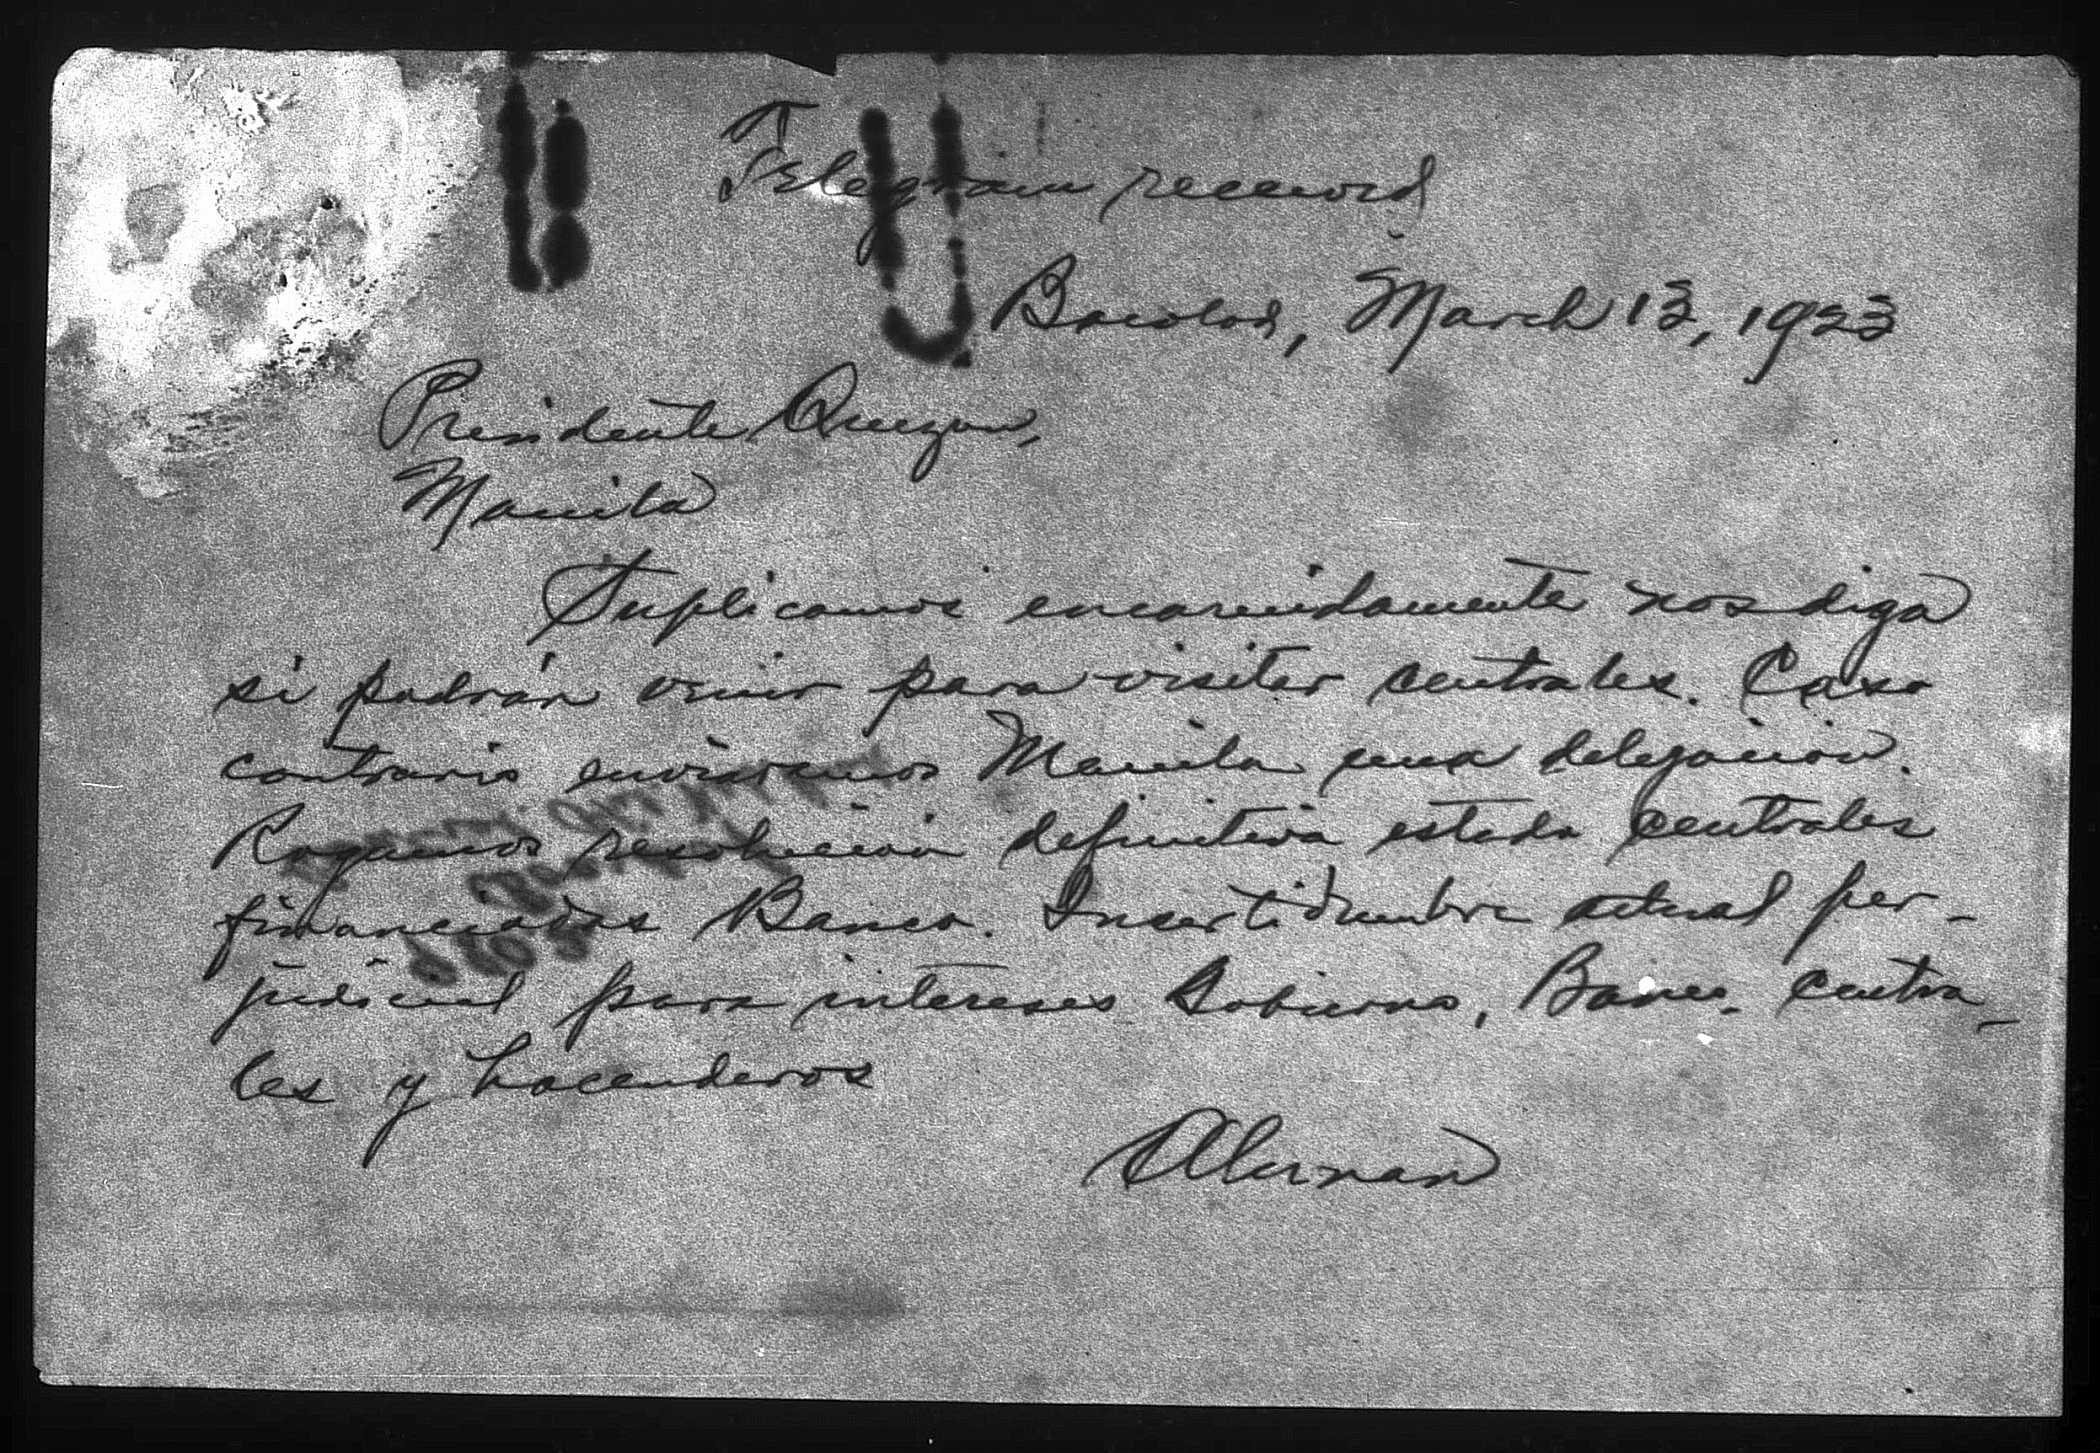 Telegram received
Bacolod, March 13, 1923
Presidente Quezon,
Manila
Suplicamos encarecidamente nos diga
si podrán venir para visitar centrales. Caso
contrario enviaremos Manila una delegación.
Rogamos resolución definitiva estado centrales
financiadas Banco. Insertidumbre actual per-
judicial para intereses Gobierno, Banco, centra-
les y hacenderos
Alunan